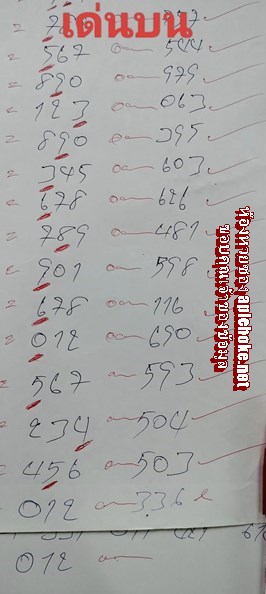 เด่นบน
567 544
890 979
123 063
890 395
345 603
678 626
789 481
901 598
678 116
012 690
567 593
234 504
456 503
012 336
012
ห้องหวยซอง aplchoke.net
ขอบคุณเจ้าของข้อมูล